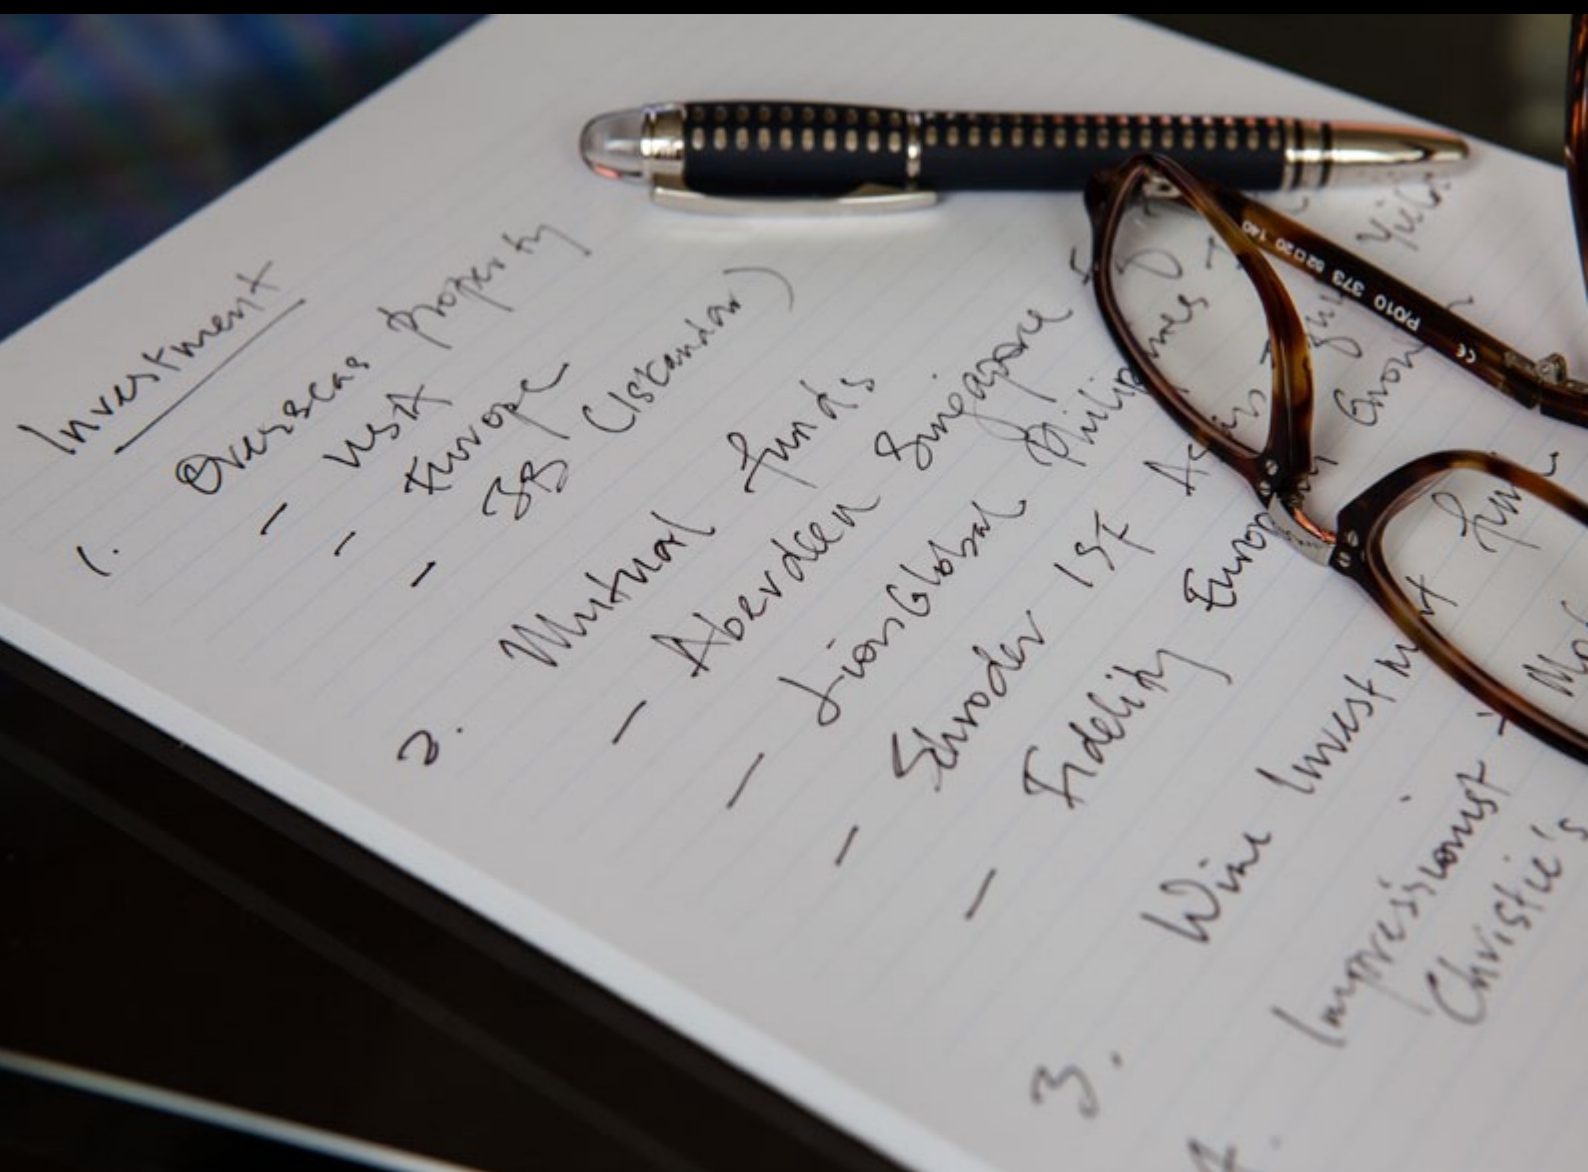 Investment
1. Overseas property
- West
- Europe
- JB (Iskandar)
2. Mutual funds
- Aberdeen Singapore
- LionGlobal Philippines
- Schroder ISF Asian
- Fidelity European
3. Wine Investment fund
4. Impressionist +
Christie's
P/010 373 52□20 140
CE